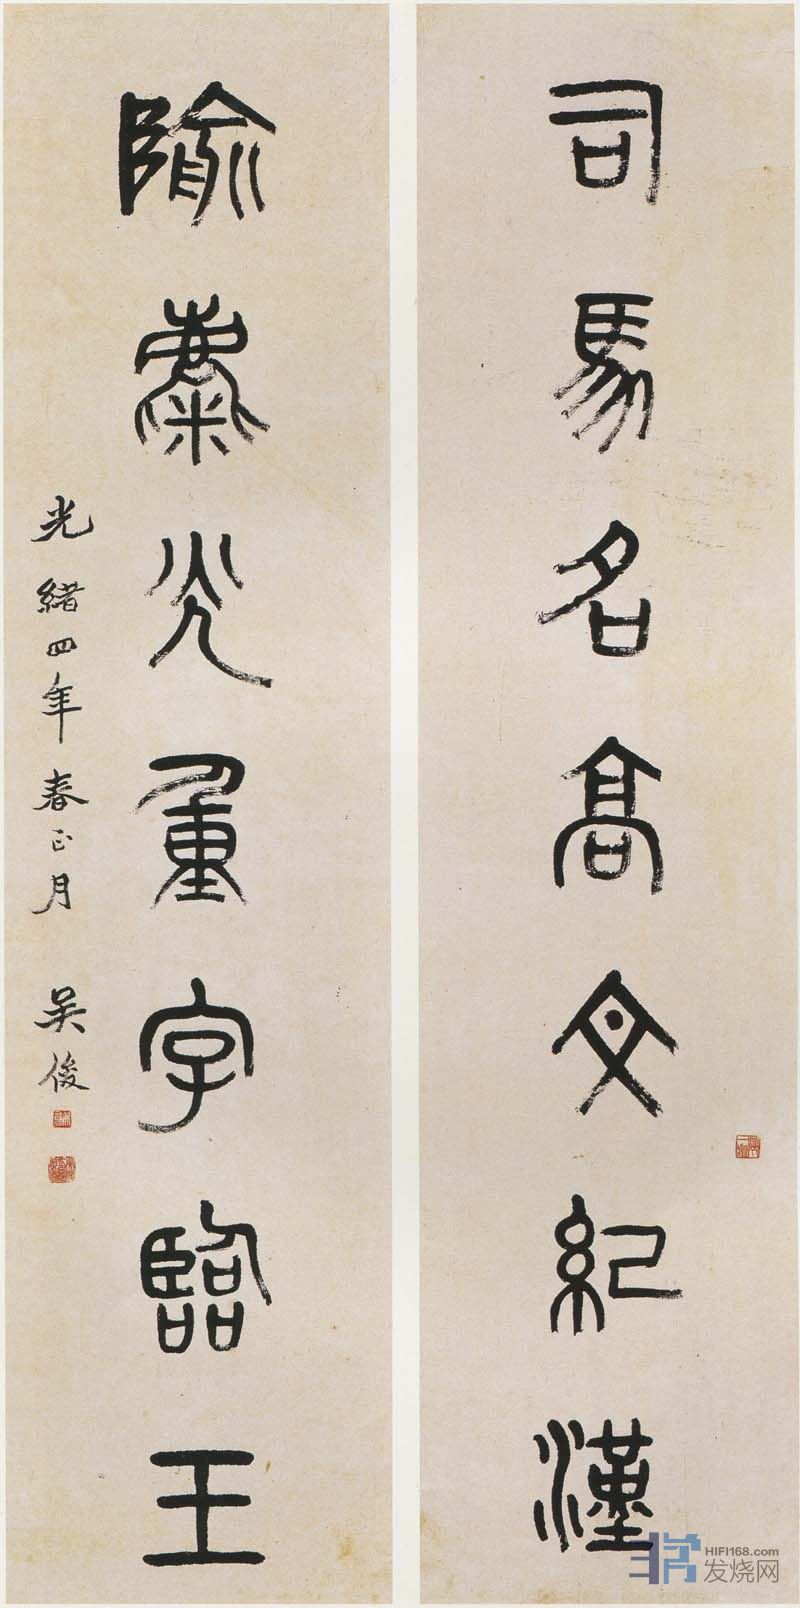 司馬名高文紀漢
隃麋光重字臨王
光緒四年春正月 吴俊
HIFI168.com
发烧网